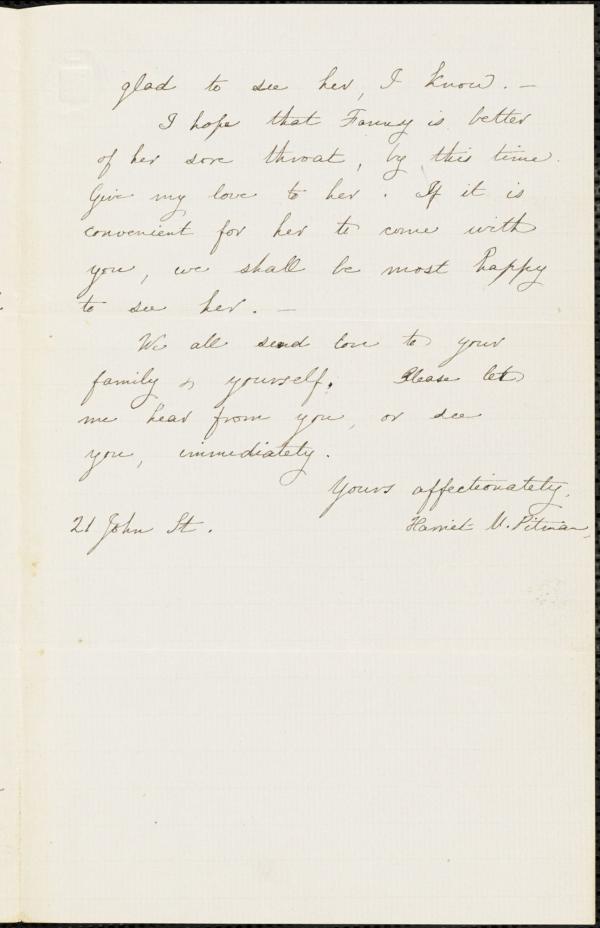 glad to see her, I know. —
I hope that Fanny is better
of her sore throat, by this time.
Give my love to her. If it is
convenient for her to come with
you, we shall be most happy
to see her. —
We all send love to your
family & yourself. Please let
me hear from you, or see
you, immediately.
Yours affectionately,
21 John St. Harriet M. Pitman,